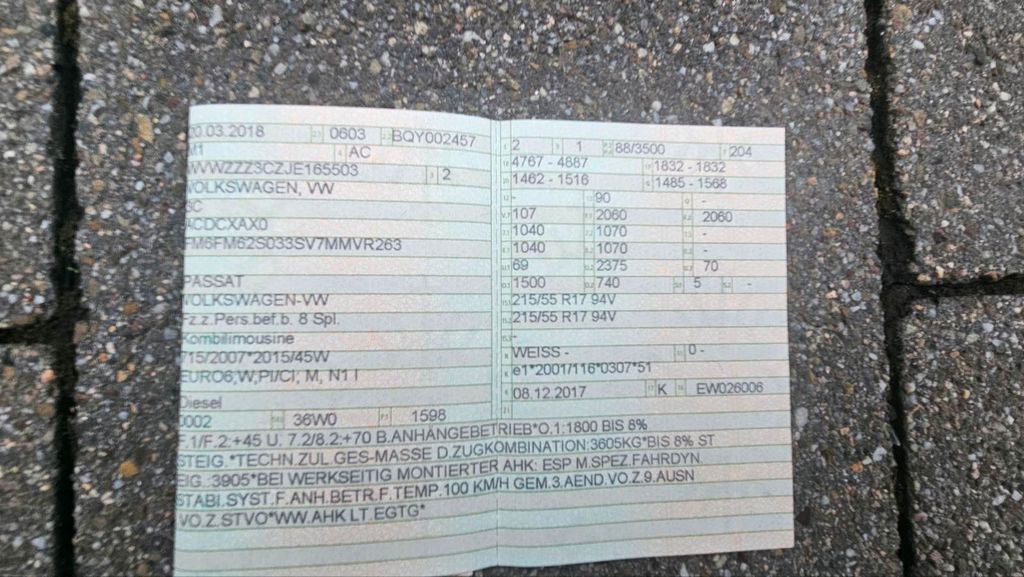 20.03.2018 0603 BQY002457
M1 AC
WVWZZZ3CZJE165503 2
VOLKSWAGEN, VW
3C
ACDCXAX0
FM6FM62S033SV7MMVR263
PASSAT
VOLKSWAGEN-VW
Fz.z.Pers.bef.b. 8 Spl.
Kombilimousine
715/2007*2015/45W
EURO6;W,PI/CI; M, N1 I
Diesel
0002 36W0 1598
2 1 88/3500 204
4767 - 4887 1832 - 1832
1462 - 1516 1485 - 1568
- 90 -
107 2060 2060
1040 1070 -
1040 1070 -
69 2375 70
1500 740 5 -
215/55 R17 94V
215/55 R17 94V
-
WEISS - 0 -
e1*2001/116*0307*51
08.12.2017 K EW026006
F.1/F.2:+45 U. 7.2/8.2:+70 B.ANHÄNGEBETRIEB*O.1:1800 BIS 8%
STEIG.*TECHN.ZUL.GES-MASSE D.ZUGKOMBINATION:3605KG*BIS 8% ST
EIG.:3905*BEI WERKSEITIG MONTIERTER AHK: ESP M.SPEZ.FAHRDYN.
STABI.SYST.F.ANH.BETR.F.TEMP.100 KM/H GEM.3.AEND.VO.Z.9.AUSN
.VO.Z.STVO*WW.AHK LT.EGTG*